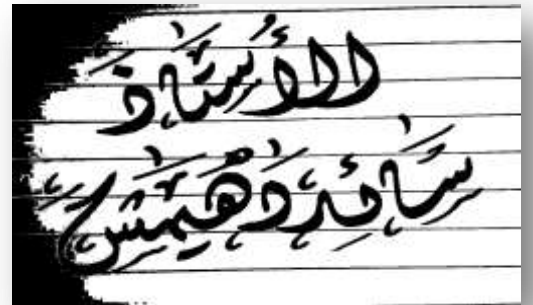 الأستاذ
سائد دهيمش